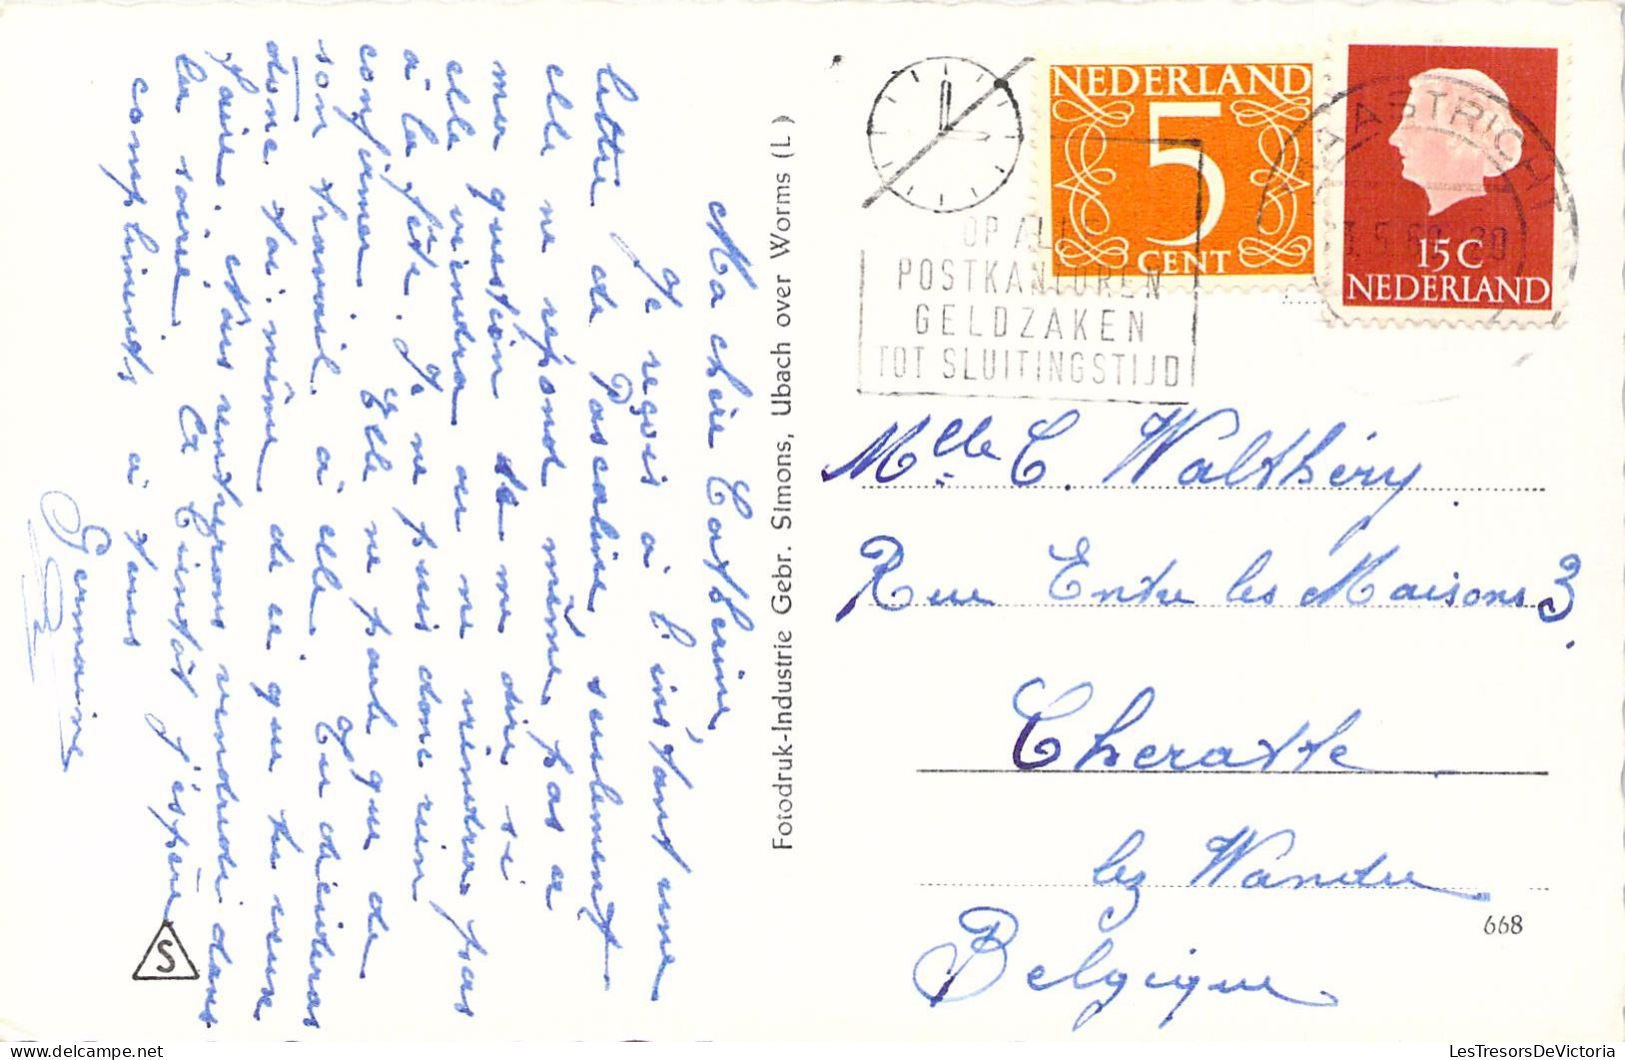 Ma chère Catherine,
Je reçois à l'instant une
lettre de Pascaline, seulement
elle ne répond même pas a
mer question de me dire si
elle viendra ou ne viendra pas
à la fête. Je ne puis donc rien
confirmer. Elle ne parle que de
son travail à elle. Tu décideras
donc toi même de ce que tu veux
faire. Nous rentrerons vendredi dans
la soirée. A bientôt j'espère
compliments à tous
Germaine
S
Fotodruk-Industrie Gebr. Simons, Ubach over Worms (L)
OP ALLE
POSTKANTOREN
GELDZAKEN
TOT SLUITINGSTIJD
NEDERLAND
5
CENT
MAASTRICHT
15 C
NEDERLAND
Mlle C. Walthéry
Rue Entre les Maisons 3.
Cheratte
lez Wandre
Belgique
668
LesTresorsDeVictoria